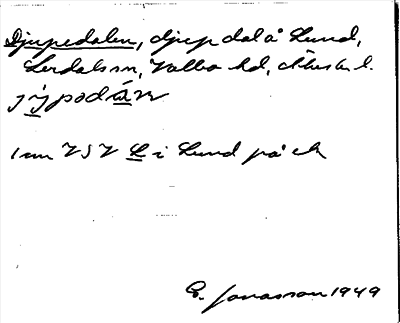 Djupedalen, djup dal å Lund,
Lerdals sn, Valbo hd, Älvsb. l.
jỳpədán
1 km VSV L i Lund på ek
E. Jonasson 1949